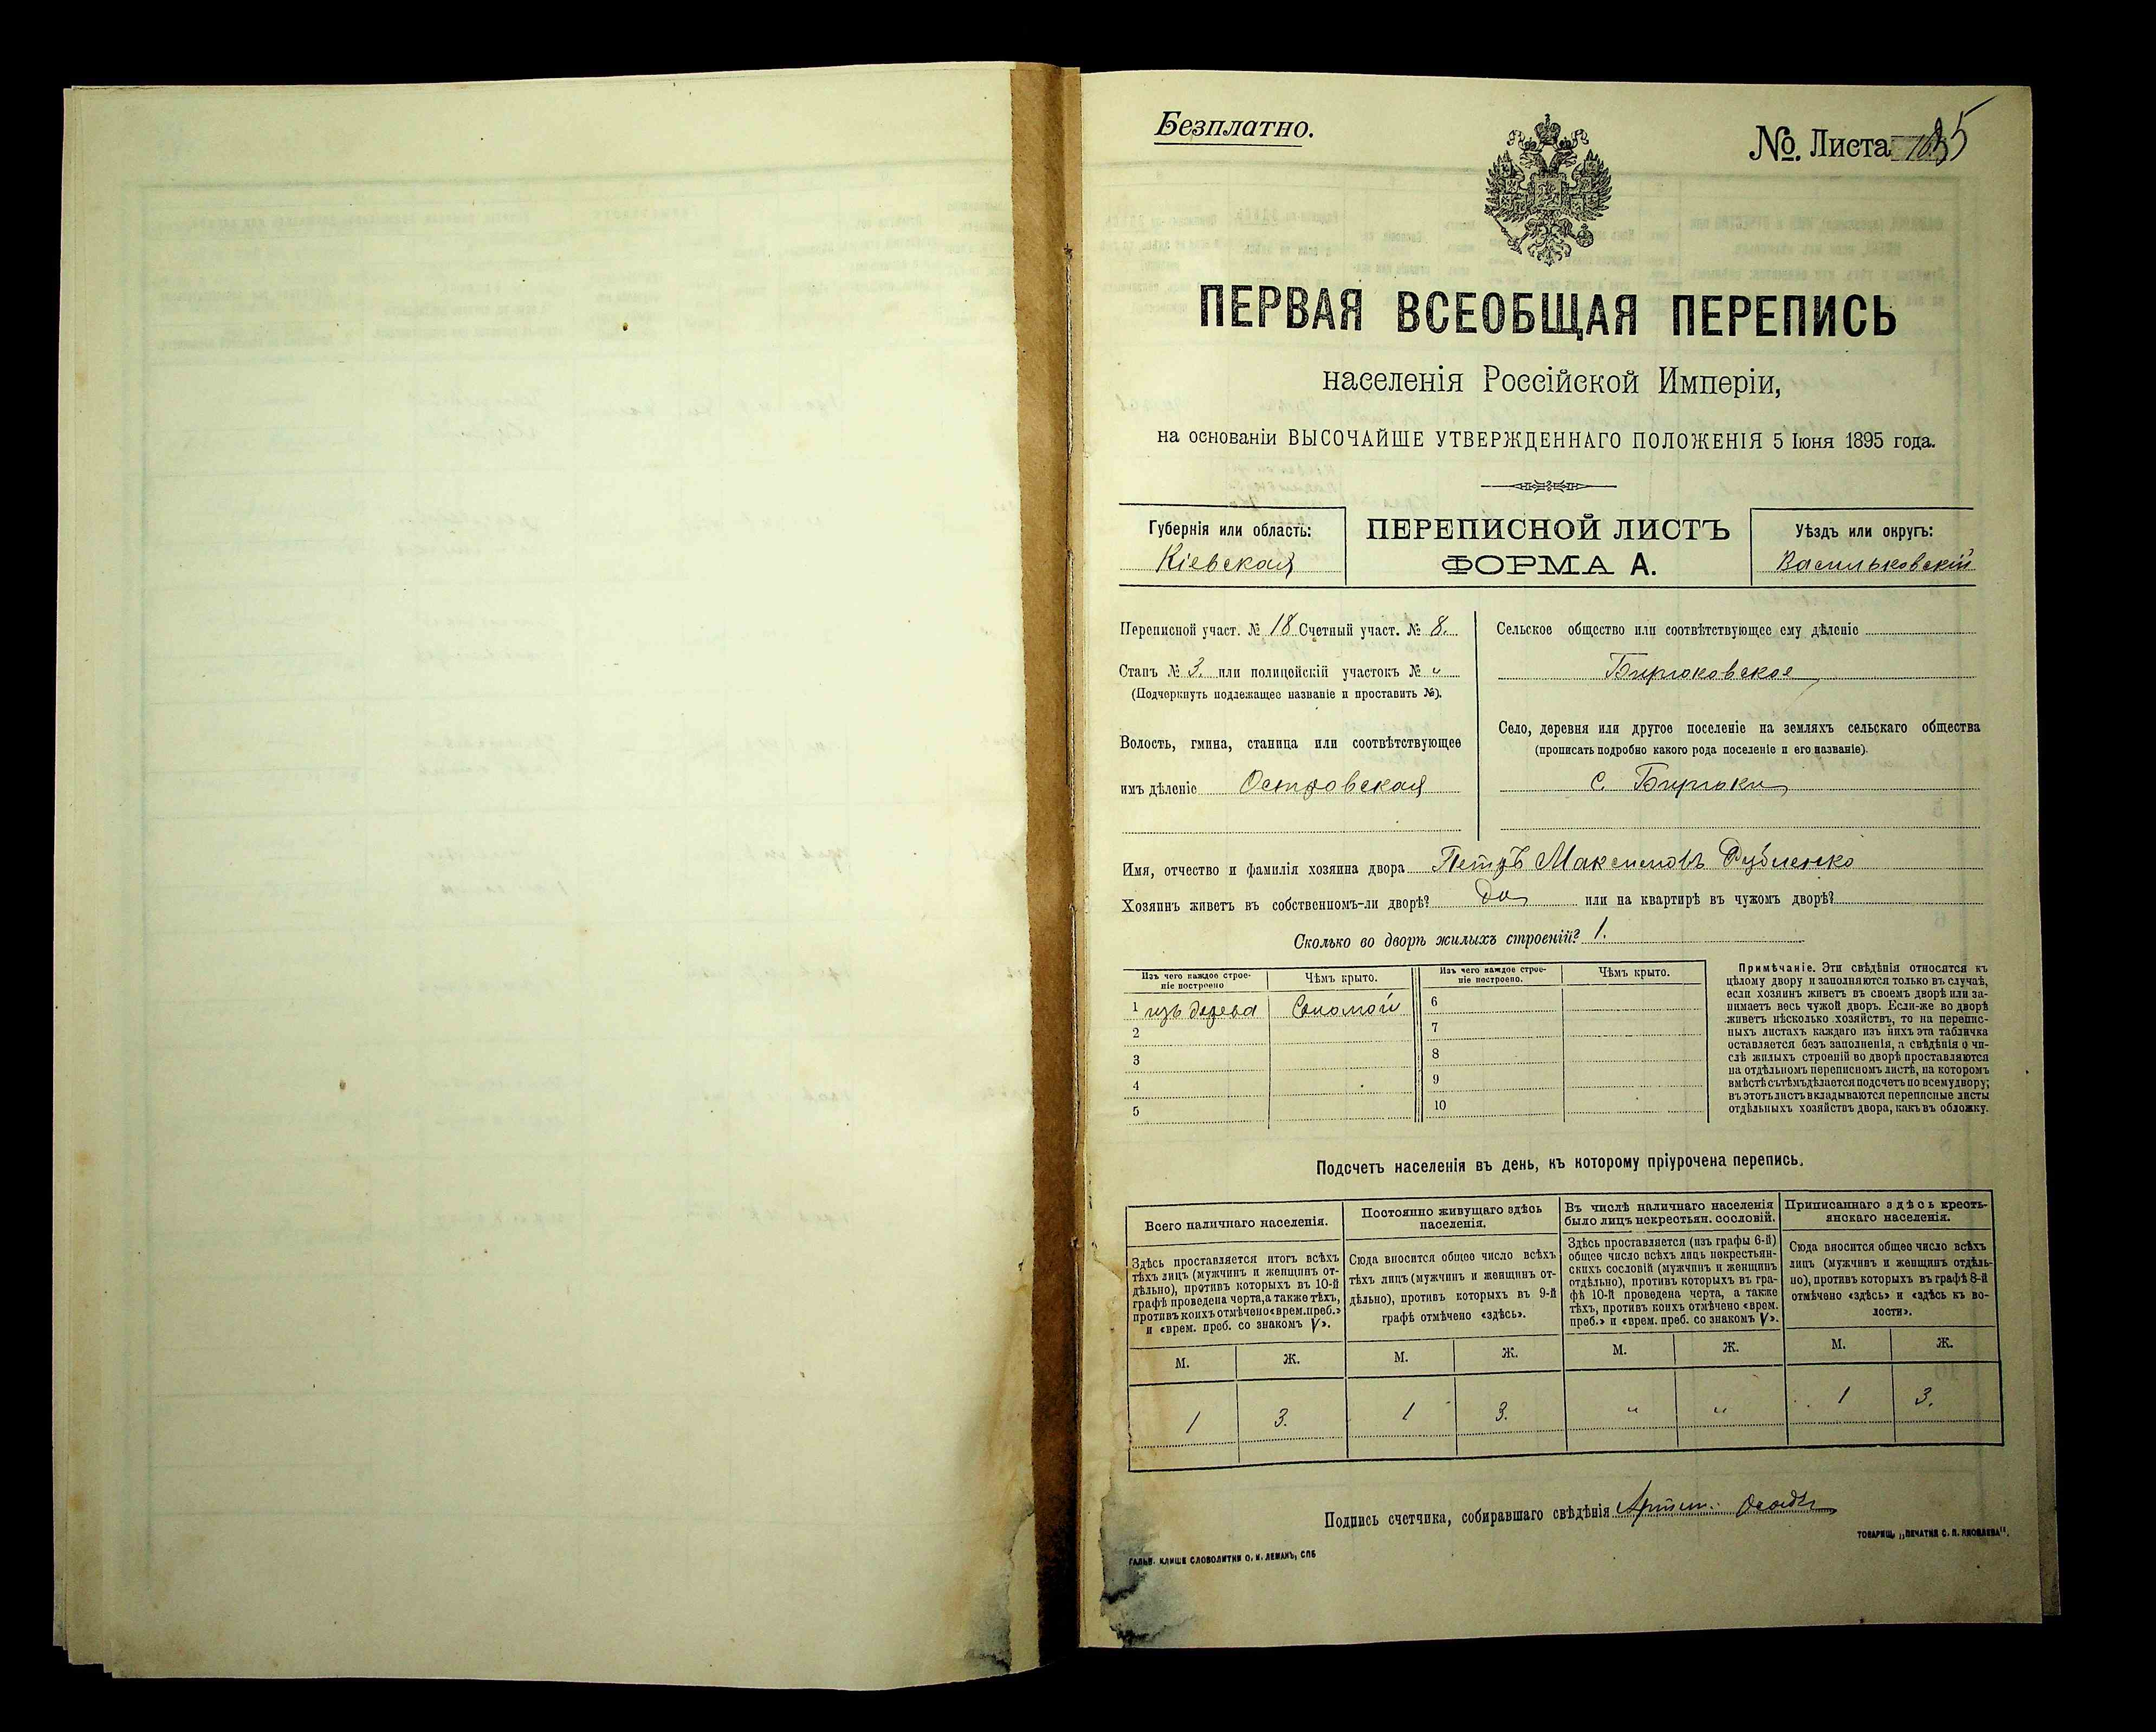 Безплатно.
№. Листа
ПЕРВАЯ ВСЕОБЩАЯ ПЕРЕПИСЬ
населенія Россійской Имперіи,
на основаніи ВЫСОЧАЙШЕ УТВЕРЖДЕННАГО ПОЛОЖЕНІЯ 5 Іюня 1895 года.
Губернія или область:
Кіевская
ПЕРЕПИСНОЙ ЛИСТЪ
ФОРМА А.
Уѣздъ или округъ:
Васильковскій
Переписной участ. № 18 Счетный участ. № 8.
Станъ № 3. или полицейскій участокъ № "
(Подчеркнуть подлежащее названіе и проставить №).
Волость, гмина, станица или соотвѣтствующее
имъ дѣленіе Островская
Сельское общество или соотвѣтствующее ему дѣленіе
Бирюковское
Село, деревня или другое поселеніе на земляхъ сельскаго общества
(прописать подробно какого рода поселеніе и его названіе).
с. Бирюки
Имя, отчество и фамилія хозяина двора Петръ Максимовъ
Хозяинъ живетъ въ собственномъ-ли дворѣ? да или на квартирѣ въ чужомъ дворѣ?
Сколько во дворѣ жилыхъ строеній? 1.
Изъ чего каждое строе-
ніе построено
Чѣмъ крыто.
Изъ чего каждое строе-
ніе построено.
Чѣмъ крыто.
1 изъ дерева Соломой
2
3
4
5
6
7
8
9
10
Примѣчаніе. Эти свѣдѣнія относятся къ
цѣлому двору и заполняются только въ случаѣ,
если хозяинъ живетъ въ своемъ дворѣ или за-
нимаетъ весь чужой дворъ. Если-же во дворѣ
живетъ нѣсколько хозяйствъ, то на перепис-
ныхъ листахъ каждаго изъ нихъ эта табличка
оставляется безъ заполненія, а свѣдѣнія о чи-
слѣ жилыхъ строеній во дворѣ проставляются
на отдѣльномъ переписномъ листѣ, на которомъ
вмѣстѣ съ тѣмъ дѣлается подсчетъ по всему двору;
въ этотъ листъ вкладываются переписные листы
отдѣльныхъ хозяйствъ двора, какъ въ обложку.
Подсчетъ населенія въ день, къ которому пріурочена перепись.
Всего наличнаго населенія.
Здѣсь проставляется итогъ всѣхъ
тѣхъ лицъ (мужчинъ и женщинъ от-
дѣльно), противъ которыхъ въ 10-й
графѣ проведена черта, а также тѣхъ,
противъ коихъ отмѣчено «врем. преб.»
и «врем. преб. со знакомъ V».
Постоянно живущаго здѣсь
населенія.
Сюда вносится общее число всѣхъ
тѣхъ лицъ (мужчинъ и женщинъ от-
дѣльно), противъ которыхъ въ 9-й
графѣ отмѣчено «здѣсь».
Въ числѣ наличнаго населенія
было лицъ некрестьян. сословій.
Здѣсь проставляется (изъ графы 6-й)
общее число всѣхъ лицъ некрестьян-
скихъ сословій (мужчинъ и женщинъ
отдѣльно), противъ которыхъ въ гра-
фѣ 10-й проведена черта, а также
тѣхъ, противъ коихъ отмѣчено «врем.
преб.» и «врем. преб. со знакомъ V».
Приписаннаго здѣсь кресть-
янскаго населенія.
Сюда вносится общее число всѣхъ
лицъ (мужчинъ и женщинъ отдѣль-
но), противъ которыхъ въ графѣ 8-й
отмѣчено «здѣсь» и «здѣсь къ во-
лости».
М. Ж. М. Ж. М. Ж. М. Ж.
1 3. 1 3. " " 1 3.
Подпись счетчика, собиравшаго свѣдѣнія
ТОВАРИЩ. „ПЕЧАТНЯ С. П. ЯКОВЛЕВА".
ГАЛЬВ. КЛИШЕ СЛОВОЛИТНИ О. И. ЛЕМАНЪ, СПБ